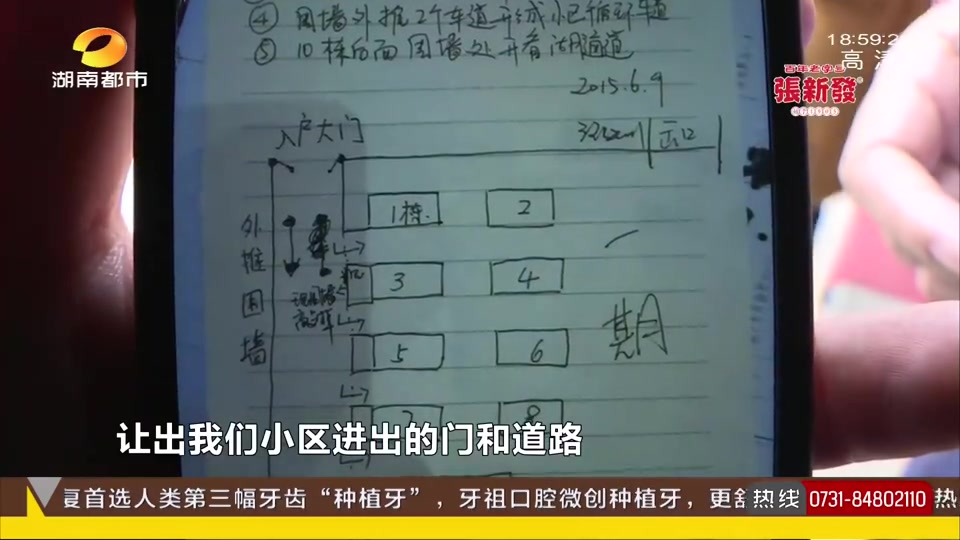 ④ 围墙外推2个车道形成小区循环车道
⑤ 10栋后面围墙处开消防通道
2015.6.9
湖南都市
18:59:2
高清
百年老字号
張新發
入户大门
出口
1栋
2
3
4
5
6
7
8
外推围墙
期
让出我们小区进出的门和道路
复首选人类第三幅牙齿“种植牙”，牙祖口腔微创种植牙，更舒
热线 0731-84802110 热